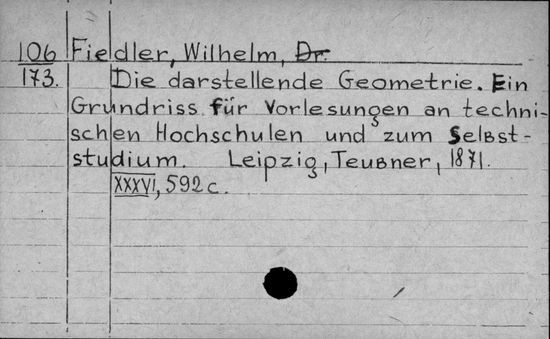 106 Fiedler, Wilhelm, Dr.
173. Die darstellende Geometrie. Ein
Grundriss für Vorlesungen an techni-
schen Hochschulen und zum Selbst-
studium. Leipzig, Teubner, 1871.
XXXVI, 592 c.